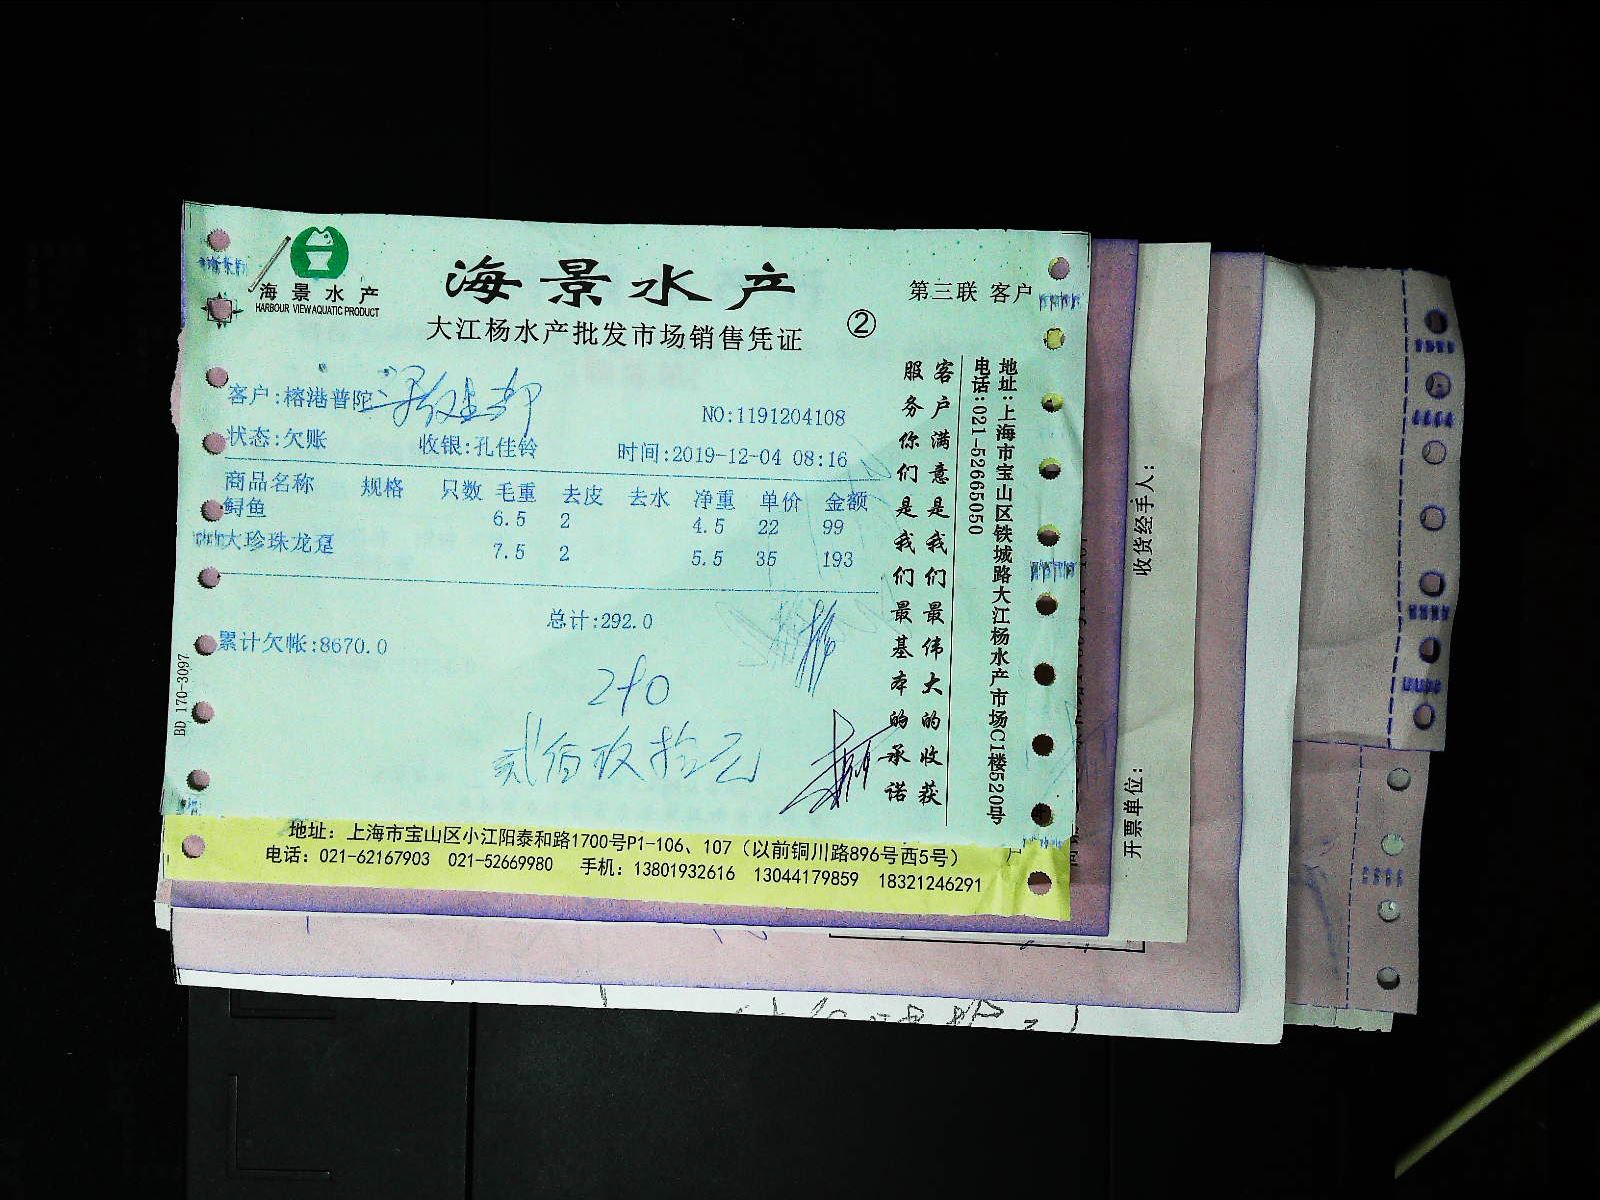 海景水产
HARBOUR VIEW AQUATIC PRODUCT
海景水产
第三联 客户
大江杨水产批发市场销售凭证 ②
客户:榕港普陀
NO:1191204108
状态:欠账 收银:孔佳铃 时间:2019-12-04 08:16
商品名称 规格 只数 毛重 去皮 去水 净重 单价 金额
鲟鱼 6.5 2 4.5 22 99
大珍珠龙趸 7.5 2 5.5 35 193
总计:292.0
累计欠帐:8670.0
290
贰佰玖拾元
BD 170-3097
客户满意是我们最伟大的收获
服务你们是我们最基本的承诺
地址:上海市宝山区铁城路大江杨水产市场C1楼520号
电话:021-52665050
地址：上海市宝山区小江阳泰和路1700号P1-106、107（以前铜川路896号西5号）
电话：021-62167903 021-52669980 手机：13801932616 13044179859 18321246291
收货经手人:
开票单位: